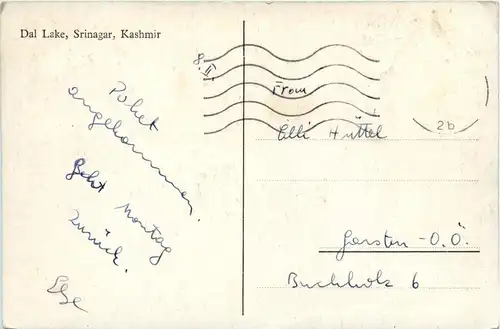 Dal Lake, Srinagar, Kashmir
8. II.
Paket
angekommen.
Geht Montag
zurück.
Else
From
Elli Hüttel
2b
Garsten - O.Ö.
Buchholz 6